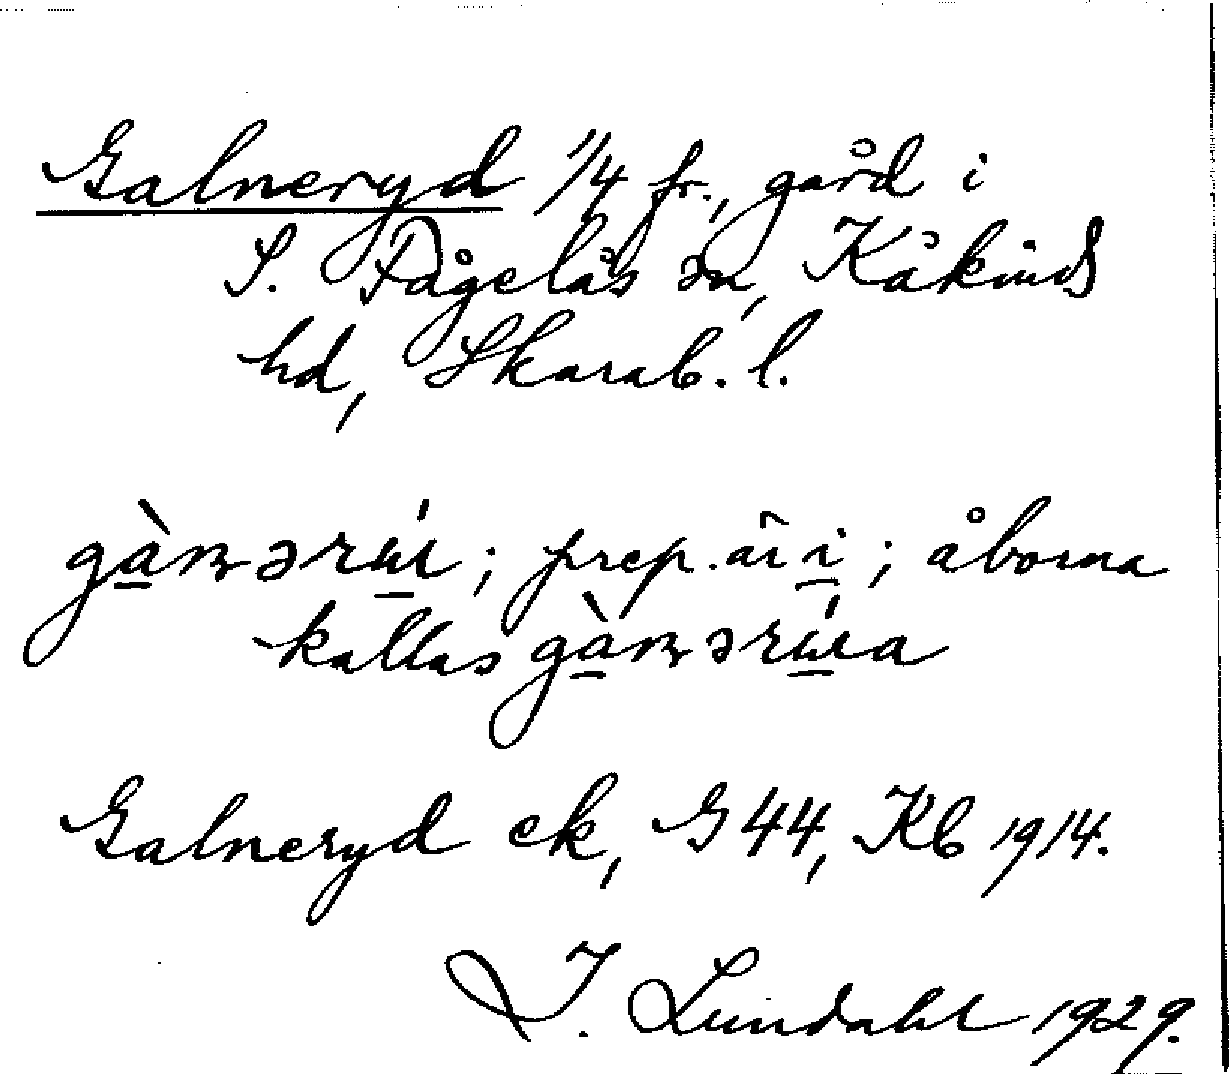 Galneryd 1/4 fr., gård i
S. Fågelås sn, Kåkinds
hd, Skarab. l.
prep. i; åborna
kallas
Galneryd ek, G 44, Kb 1914.
I. Lundahl 1929.